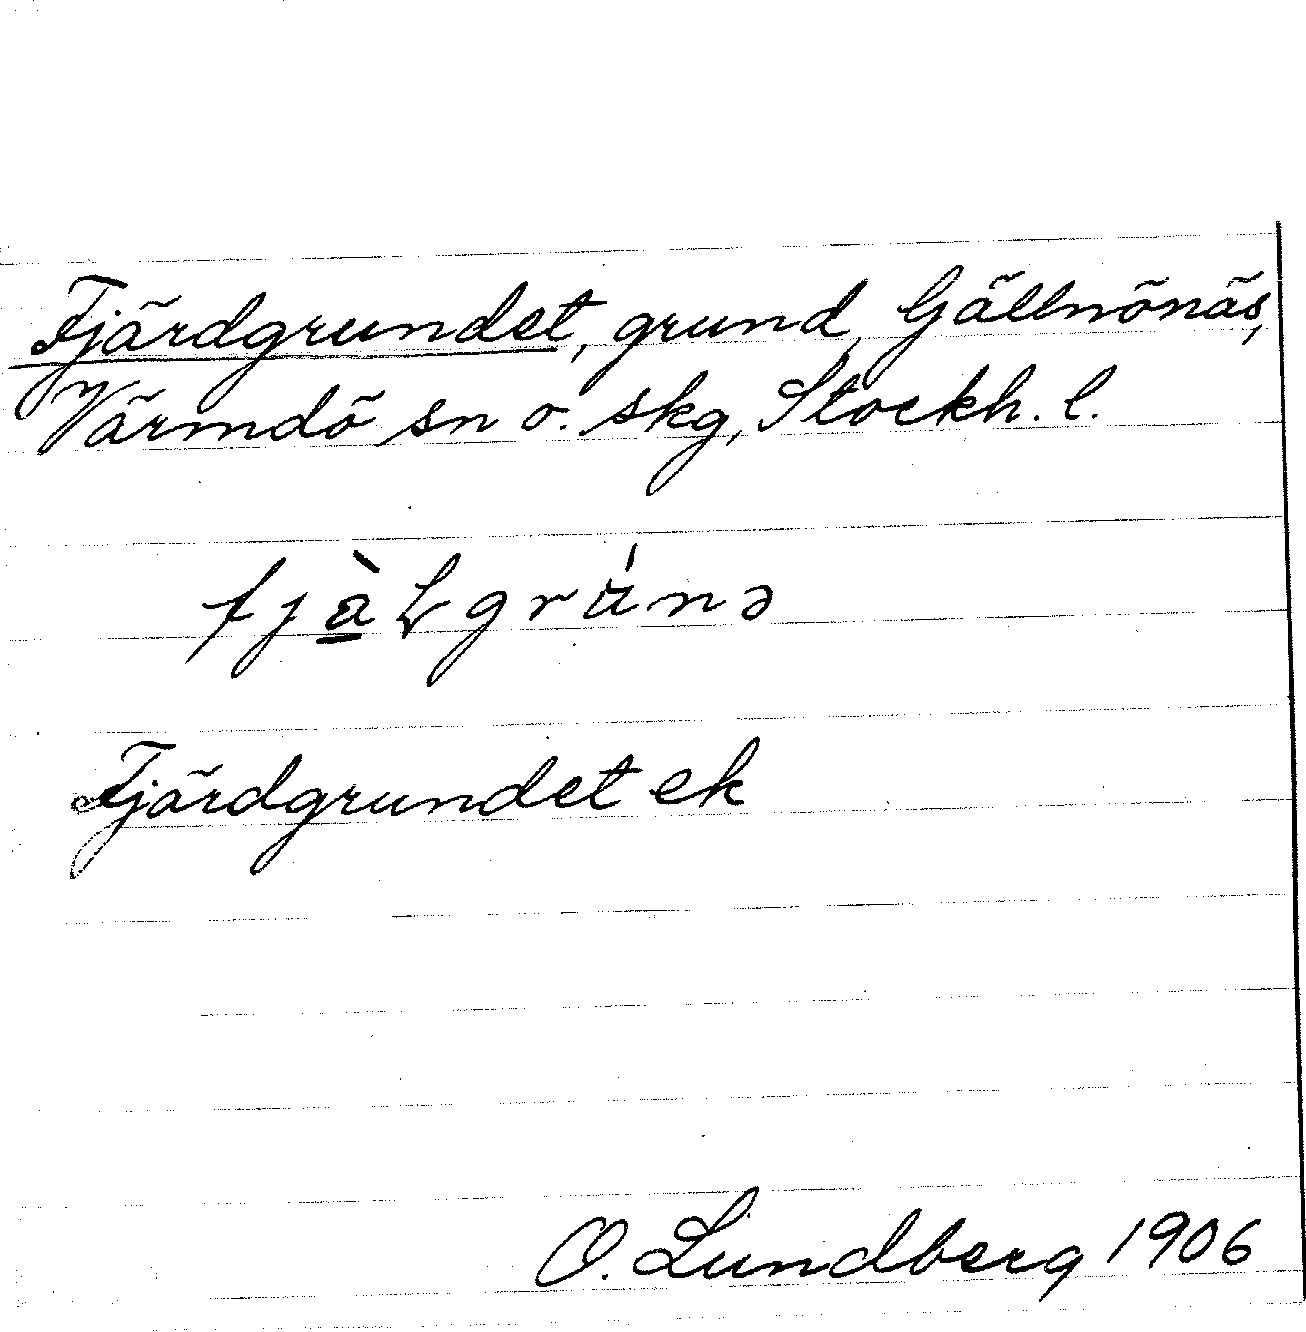 Fjärdgrundet, grund, Gällnönäs,
Värmdö sn o. skg, Stockh. l.
fjàɽgrún̥ə
Fjärdgrundet ek
O. Lundberg 1906